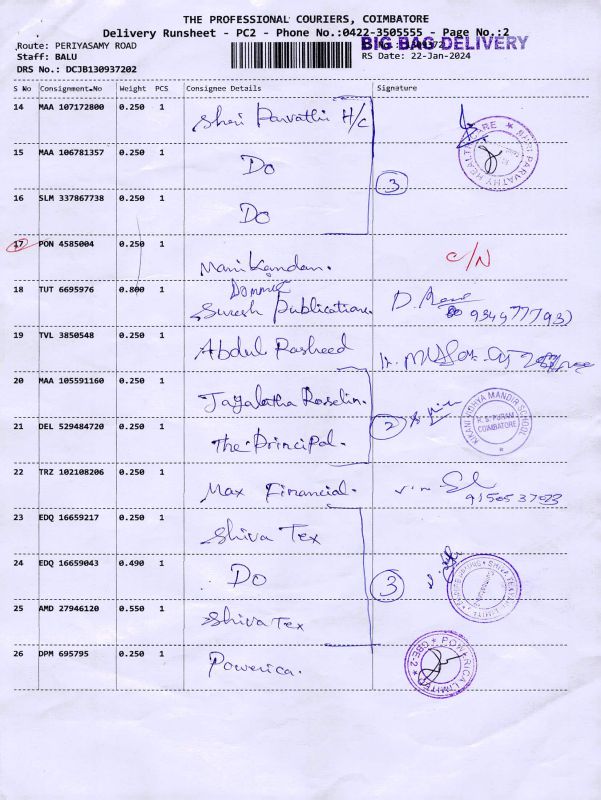 THE PROFESSIONAL COURIERS, COIMBATORE
Delivery Runsheet - PC2 - Phone No.:0422-3505555 - Page No.:2
Route: PERIYASAMY ROAD
BIG BAG DELIVERY
Staff: BALU
RS Date: 22-Jan-2024
DRS No.: DCJB130937202
S No Consignment.No Weight PCS Consignee Details Signature
14 MAA 107172800 0.250 1 Shri Parvathi H/C
15 MAA 106781357 0.250 1 Do
3
16 SLM 337867738 0.250 1 Do
17 PON 4585004 0.250 1 Manikandan. C/N
18 TUT 6695976 0.800 1 Suresh Publication. D.
19 TVL 3850548 0.250 1 Abdul Rasheed
20 MAA 105591160 0.250 1 Jayalatha Roselin.
KIKANI VIDHYA MANDIR SCHOOL
R. S. PURAM
COIMBATORE
2
21 DEL 529484720 0.250 1 The Principal.
22 TRZ 102108206 0.250 1 Max Financial.
23 EDQ 16659217 0.250 1 Shiva Tex
24 EDQ 16659043 0.490 1 Do
3
25 AMD 27946120 0.550 1 Shiva Tex
26 DPM 695795 0.250 1 Powerica.
POWERICA LIMITED
CBE-2